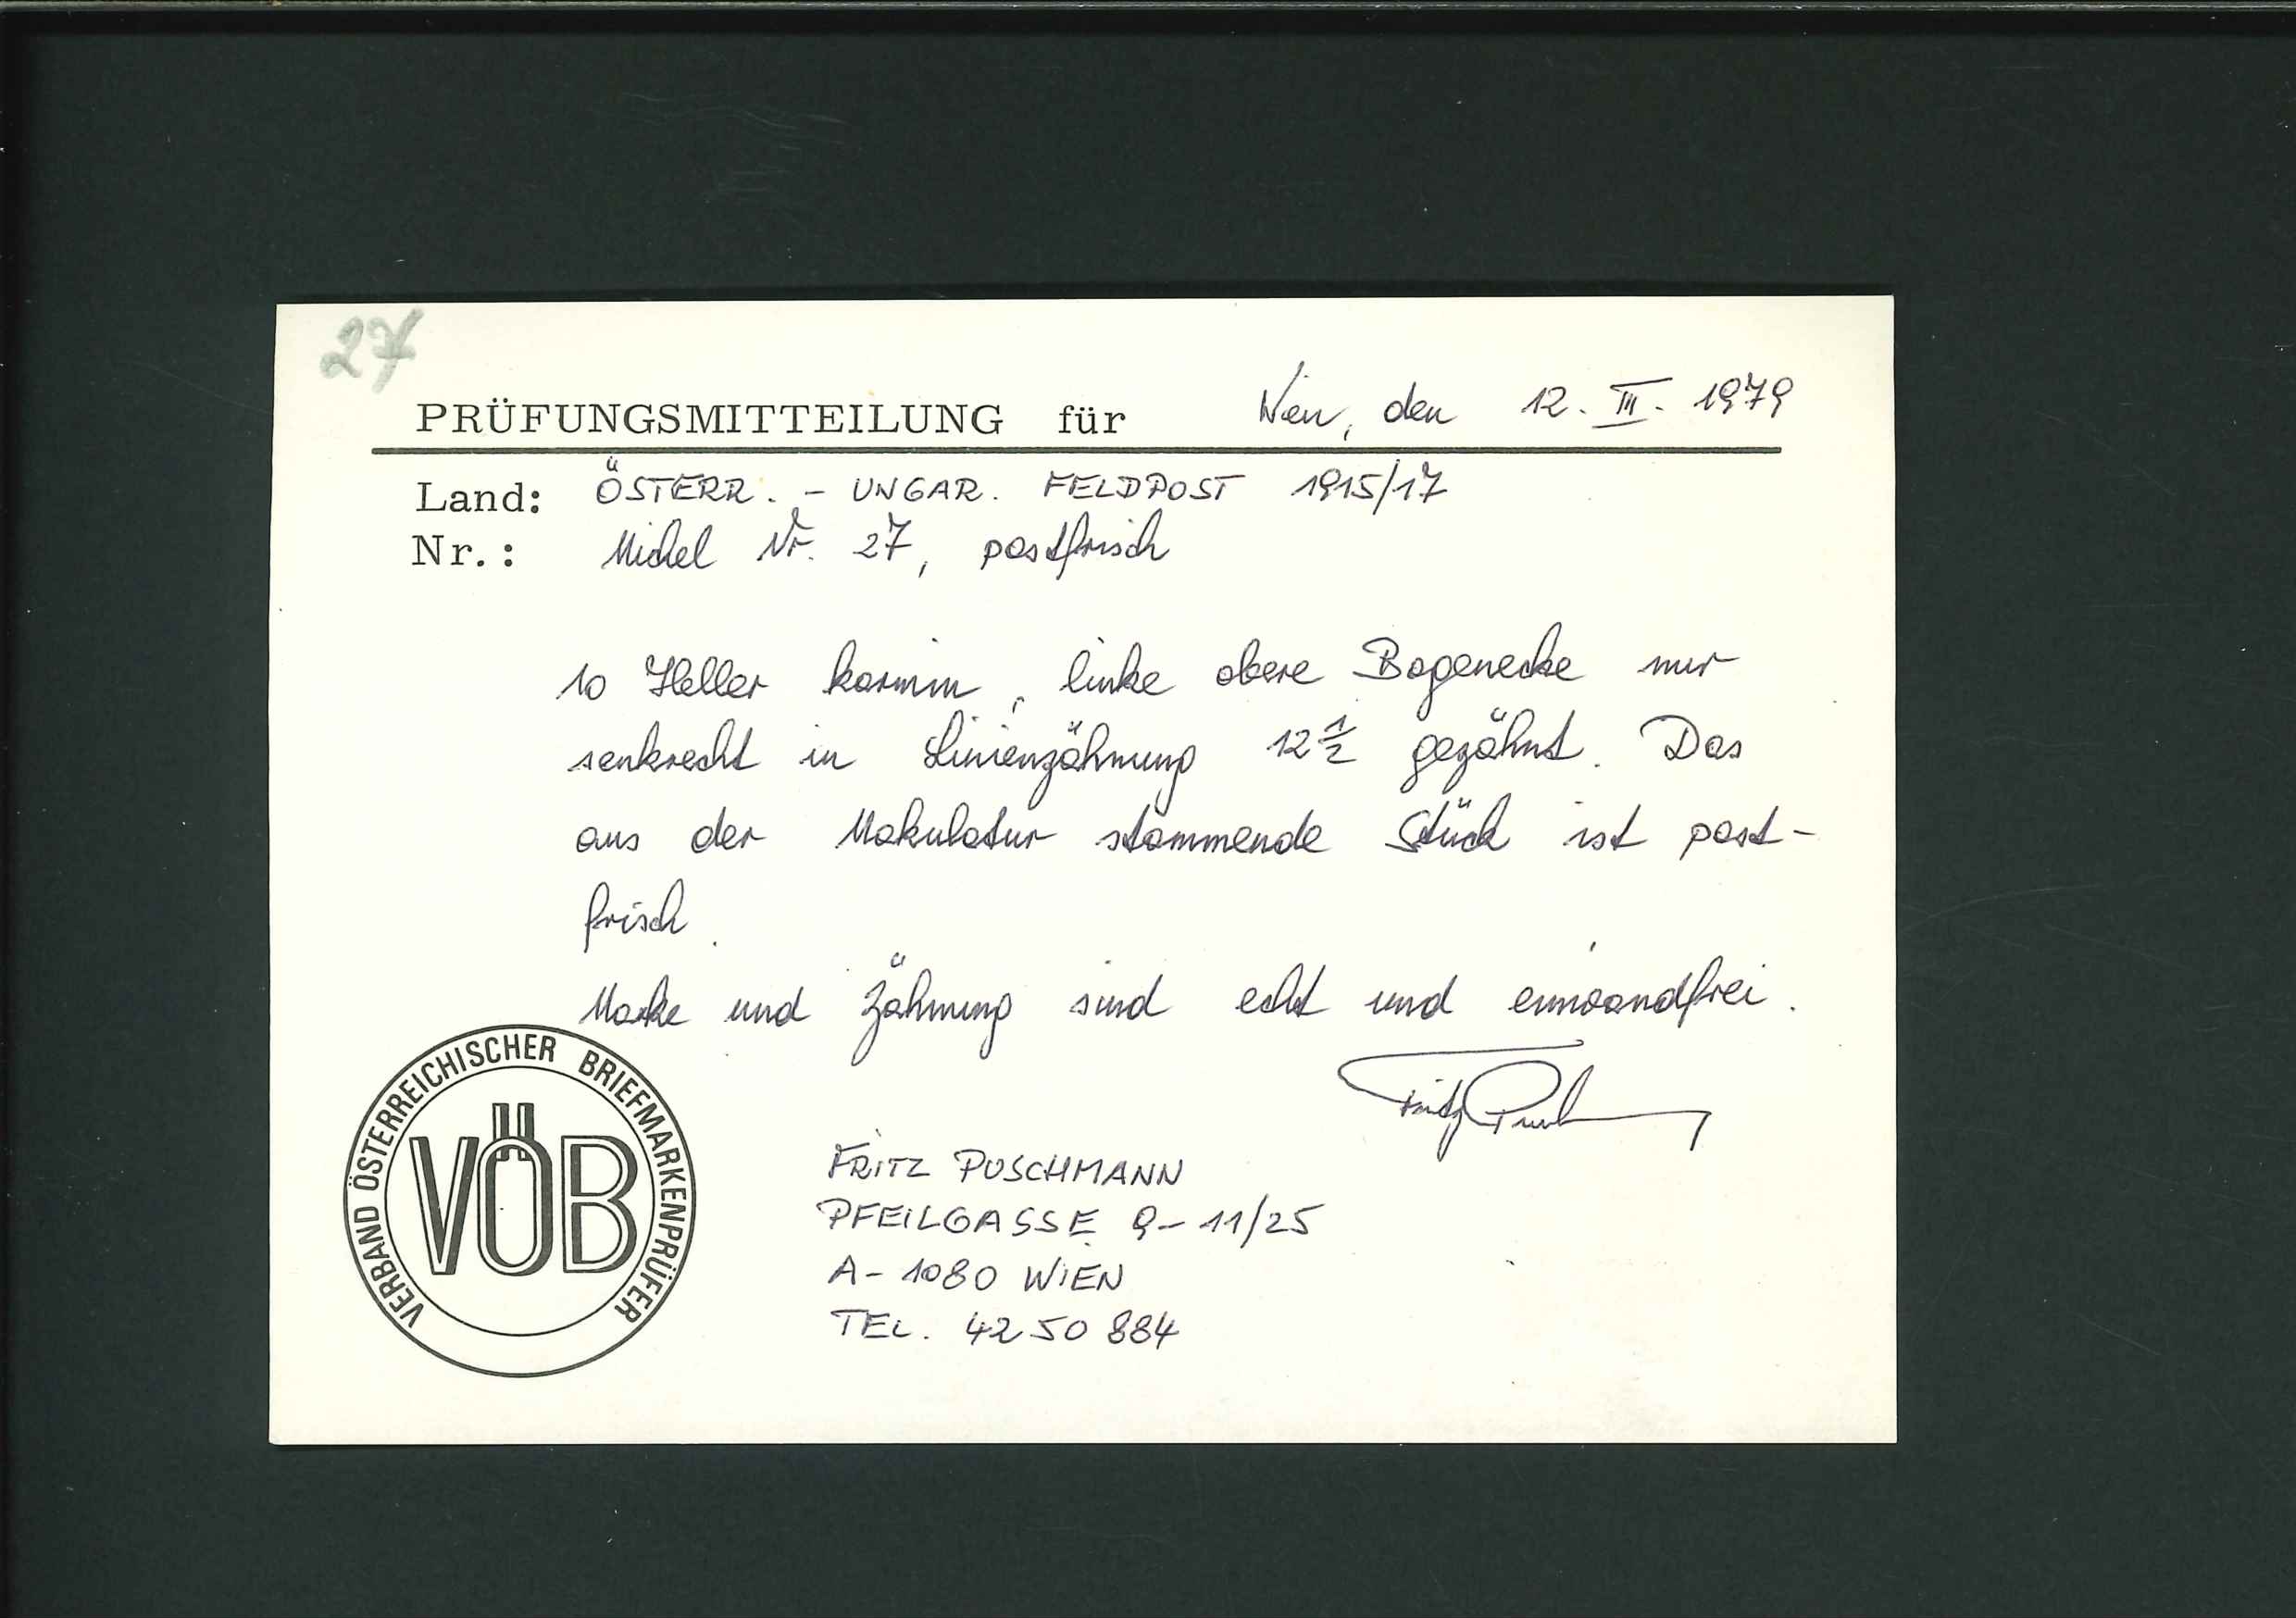 27
PRÜFUNGSMITTEILUNG für Wien, den 12. III. 1979
Land: ÖSTERR. - UNGAR. FELDPOST 1915/17
Nr.: Michel Nr. 27, postfrisch
10 Heller karmin, linke obere Bogenecke nur
senkrecht in Linienzähnung 12 1/2 gezähnt. Das
aus der Makulatur stammende Stück ist post-
frisch.
Marke und Zähnung sind echt und einwandfrei.
VERBAND ÖSTERREICHISCHER BRIEFMARKENPRÜFER
VÖB
FRITZ PUSCHMANN
PFEILGASSE 9-11/25
A-1080 WIEN
TEL. 42 50 884